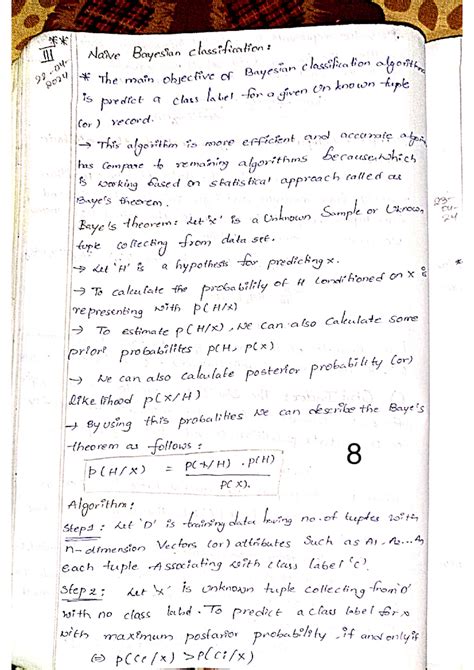 **
III
22-04-2024
Naive Bayesian classification:
* The main objective of Bayesian classification algorithm
is predict a class label for a given un known tuple
(or) record.
→ This algorithm is more efficient and accurate
has compare to remaining algorithms because which
is working based on statistical approach called as
Baye's theorem.
Baye's theorem: Let 'x' is a Unknown Sample or Uknown
tuple collecting from data set.
→ Let 'H' is a hypothesis for predicting x.
→ To calculate the probability of H conditioned on X is
representing with P(H/X)
→ To estimate P(H/X), we can also calculate some
priori probabilities P(H), P(X)
→ We can also calculate posterior probability (or)
like lihood P(X/H)
→ By using this probalities we can describe the Baye's
theorem as follows:
P(H/X) = P(X/H) . P(H)
P(X).
8
Algorithm:
Step1: Let 'D' is training data having no. of tuples with
n-dimension Vectors (or) attributes such as A1, A2...An
each tuple Associating with class label 'C'.
Step 2: Let 'X' is unknown tuple collecting from 'D'
with no class label. To predict a class label for x
with maximum posterior probability, if and only if
⇔ P(Cc/X) > P(Ci/X)